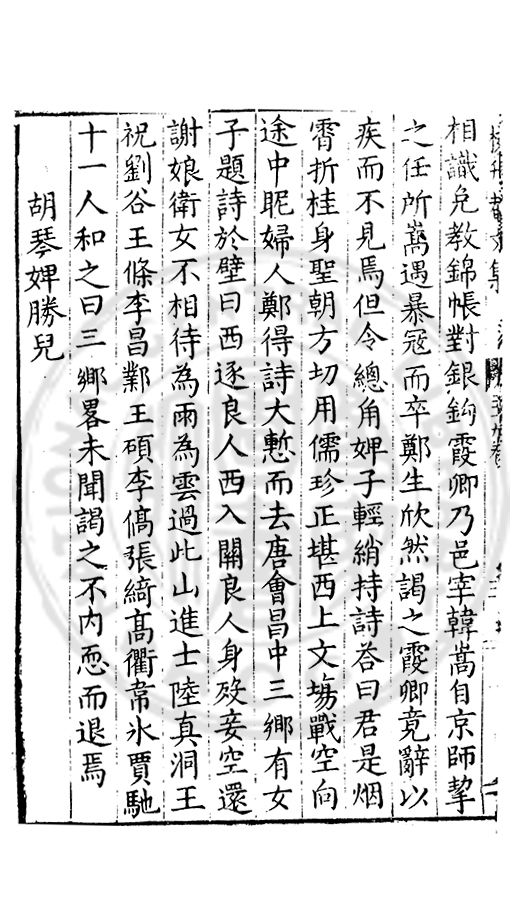 相識免教錦帳對銀鉤霞卿乃邑宰韓嵩自京師挈
之任所嵩遇暴冦而卒鄭生欣然謁之霞卿竟辭以
疾而不見焉但令總角婢子輕綃持詩荅曰君是烟
霄折桂身聖朝方切用儒珍正堪西上文塲戰空向
途中眤婦人鄭得詩大慙而去唐會昌中三鄉有女
子題詩於壁曰西逐良人西入關良人身歿妾空還
謝娘衛女不相待為雨為雲過此山進士陸真洞王
祝劉谷王條李昌鄴王碩李縞張綺高衢韋氷賈馳
十一人和之曰三鄉畧未聞謁之不内恧而退焉
胡琴婢勝兒